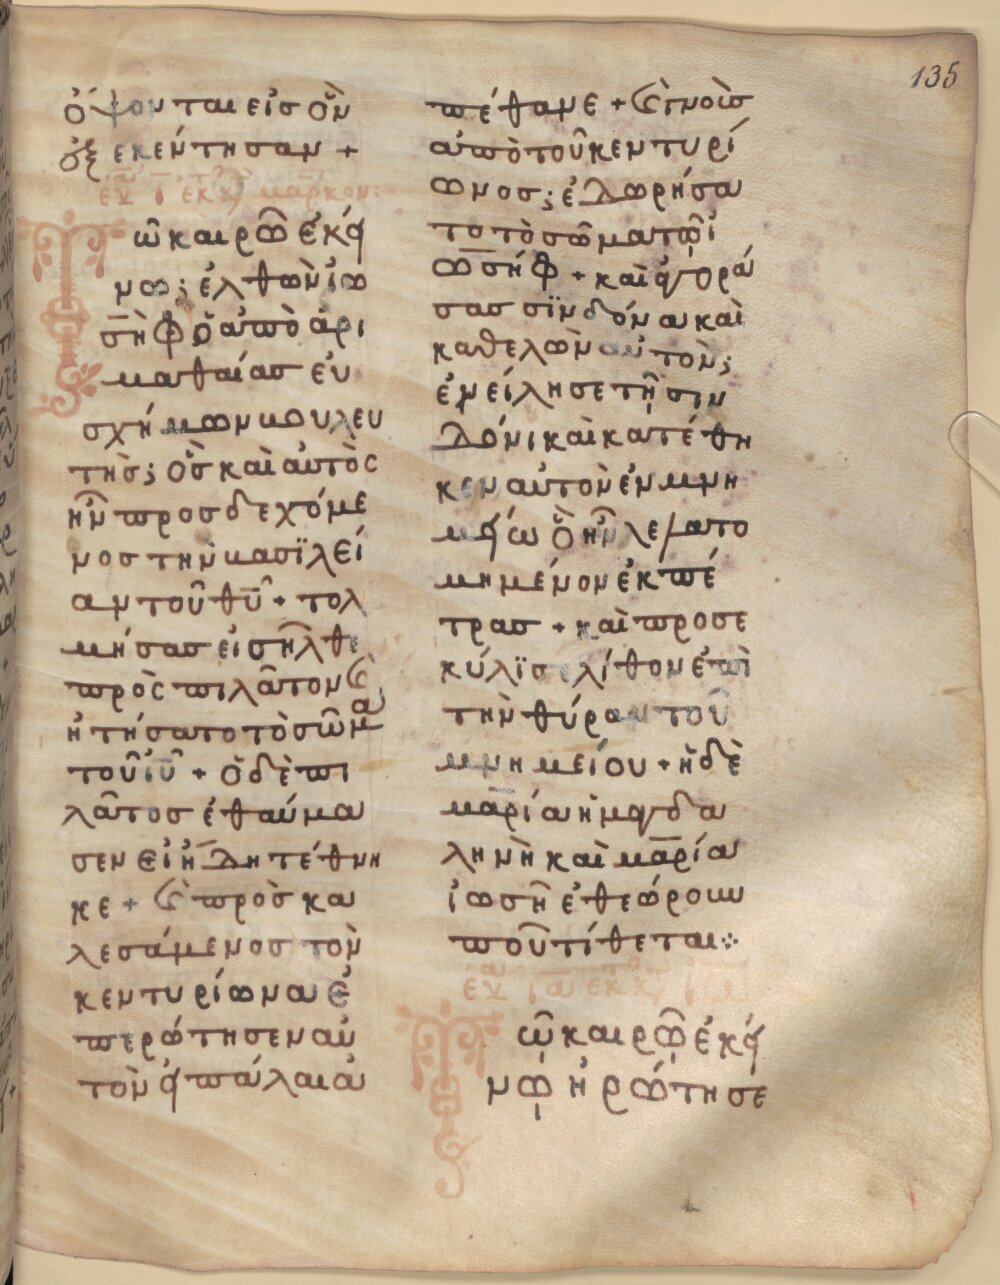 135
ὄψονται εἰσ ὃν
ἐξεκέντησαν +
εὐα ι ἐκ κ μάρκον:
Τῶ καιρῶ ἐκεί
νω; ἐλθὼν ἰω
σὴφ ὁ ἀπὸ ἀρι
μαθαίασ ἐυ
σχήμων βουλευ
τὴσ; ὃσ καὶ αὐτὸς
ἦν προσδεχόμε
νοσ τὴν βασϊλεί
αν τοῦ θῦ + τολ
μήσασ εἰσῆλθε
πρὸς πιλᾶτον (καὶ)
ἠτήσατο τὸ σῶμα
τοῦ ἰῦ + ὁ δὲ πι
λᾶτοσ ἐθαύμα
σεν εἰ ἤδη τέθνη
κε + (καὶ) πρὸσκα
λεσάμενοσ τὸν
κεντυρίωνα ἐ
περώτησεν αὐ
τὸν εἰ πάλαι ἀ
πέθανε + (καὶ) γνοὺσ
ἀπὸ τοῦ κεντυρί
ωνοσ; ἐδωρήσα
το τὸ σῶμα τῷ ἰ
ωσήφ + καὶ ἀγορά
σασ σϊνδόνα καὶ
καθελὼν αὐτὸν;
ἐνείλησε τῆ σιν
δόνι καὶ κατέθη
κεν αὐτὸν ἐν μνη
μείω ὃ ἦν λελατο
μημένον ἐκ πέ
τρασ + καὶ προσε
κύλϊσε λίθον ἐπὶ
τὴν θύραν τοῦ
μνημείου + ἡ δὲ
μαρία ἡ μαγδα
ληνὴ καὶ μαρία
ἰωσῆ ἐθεώρουν
ποῦ τίθεται:
εὐα ια ἐκ κ ἰω
Τῷ καιρῷ ἐκεί
νῳ ἠρώτησε